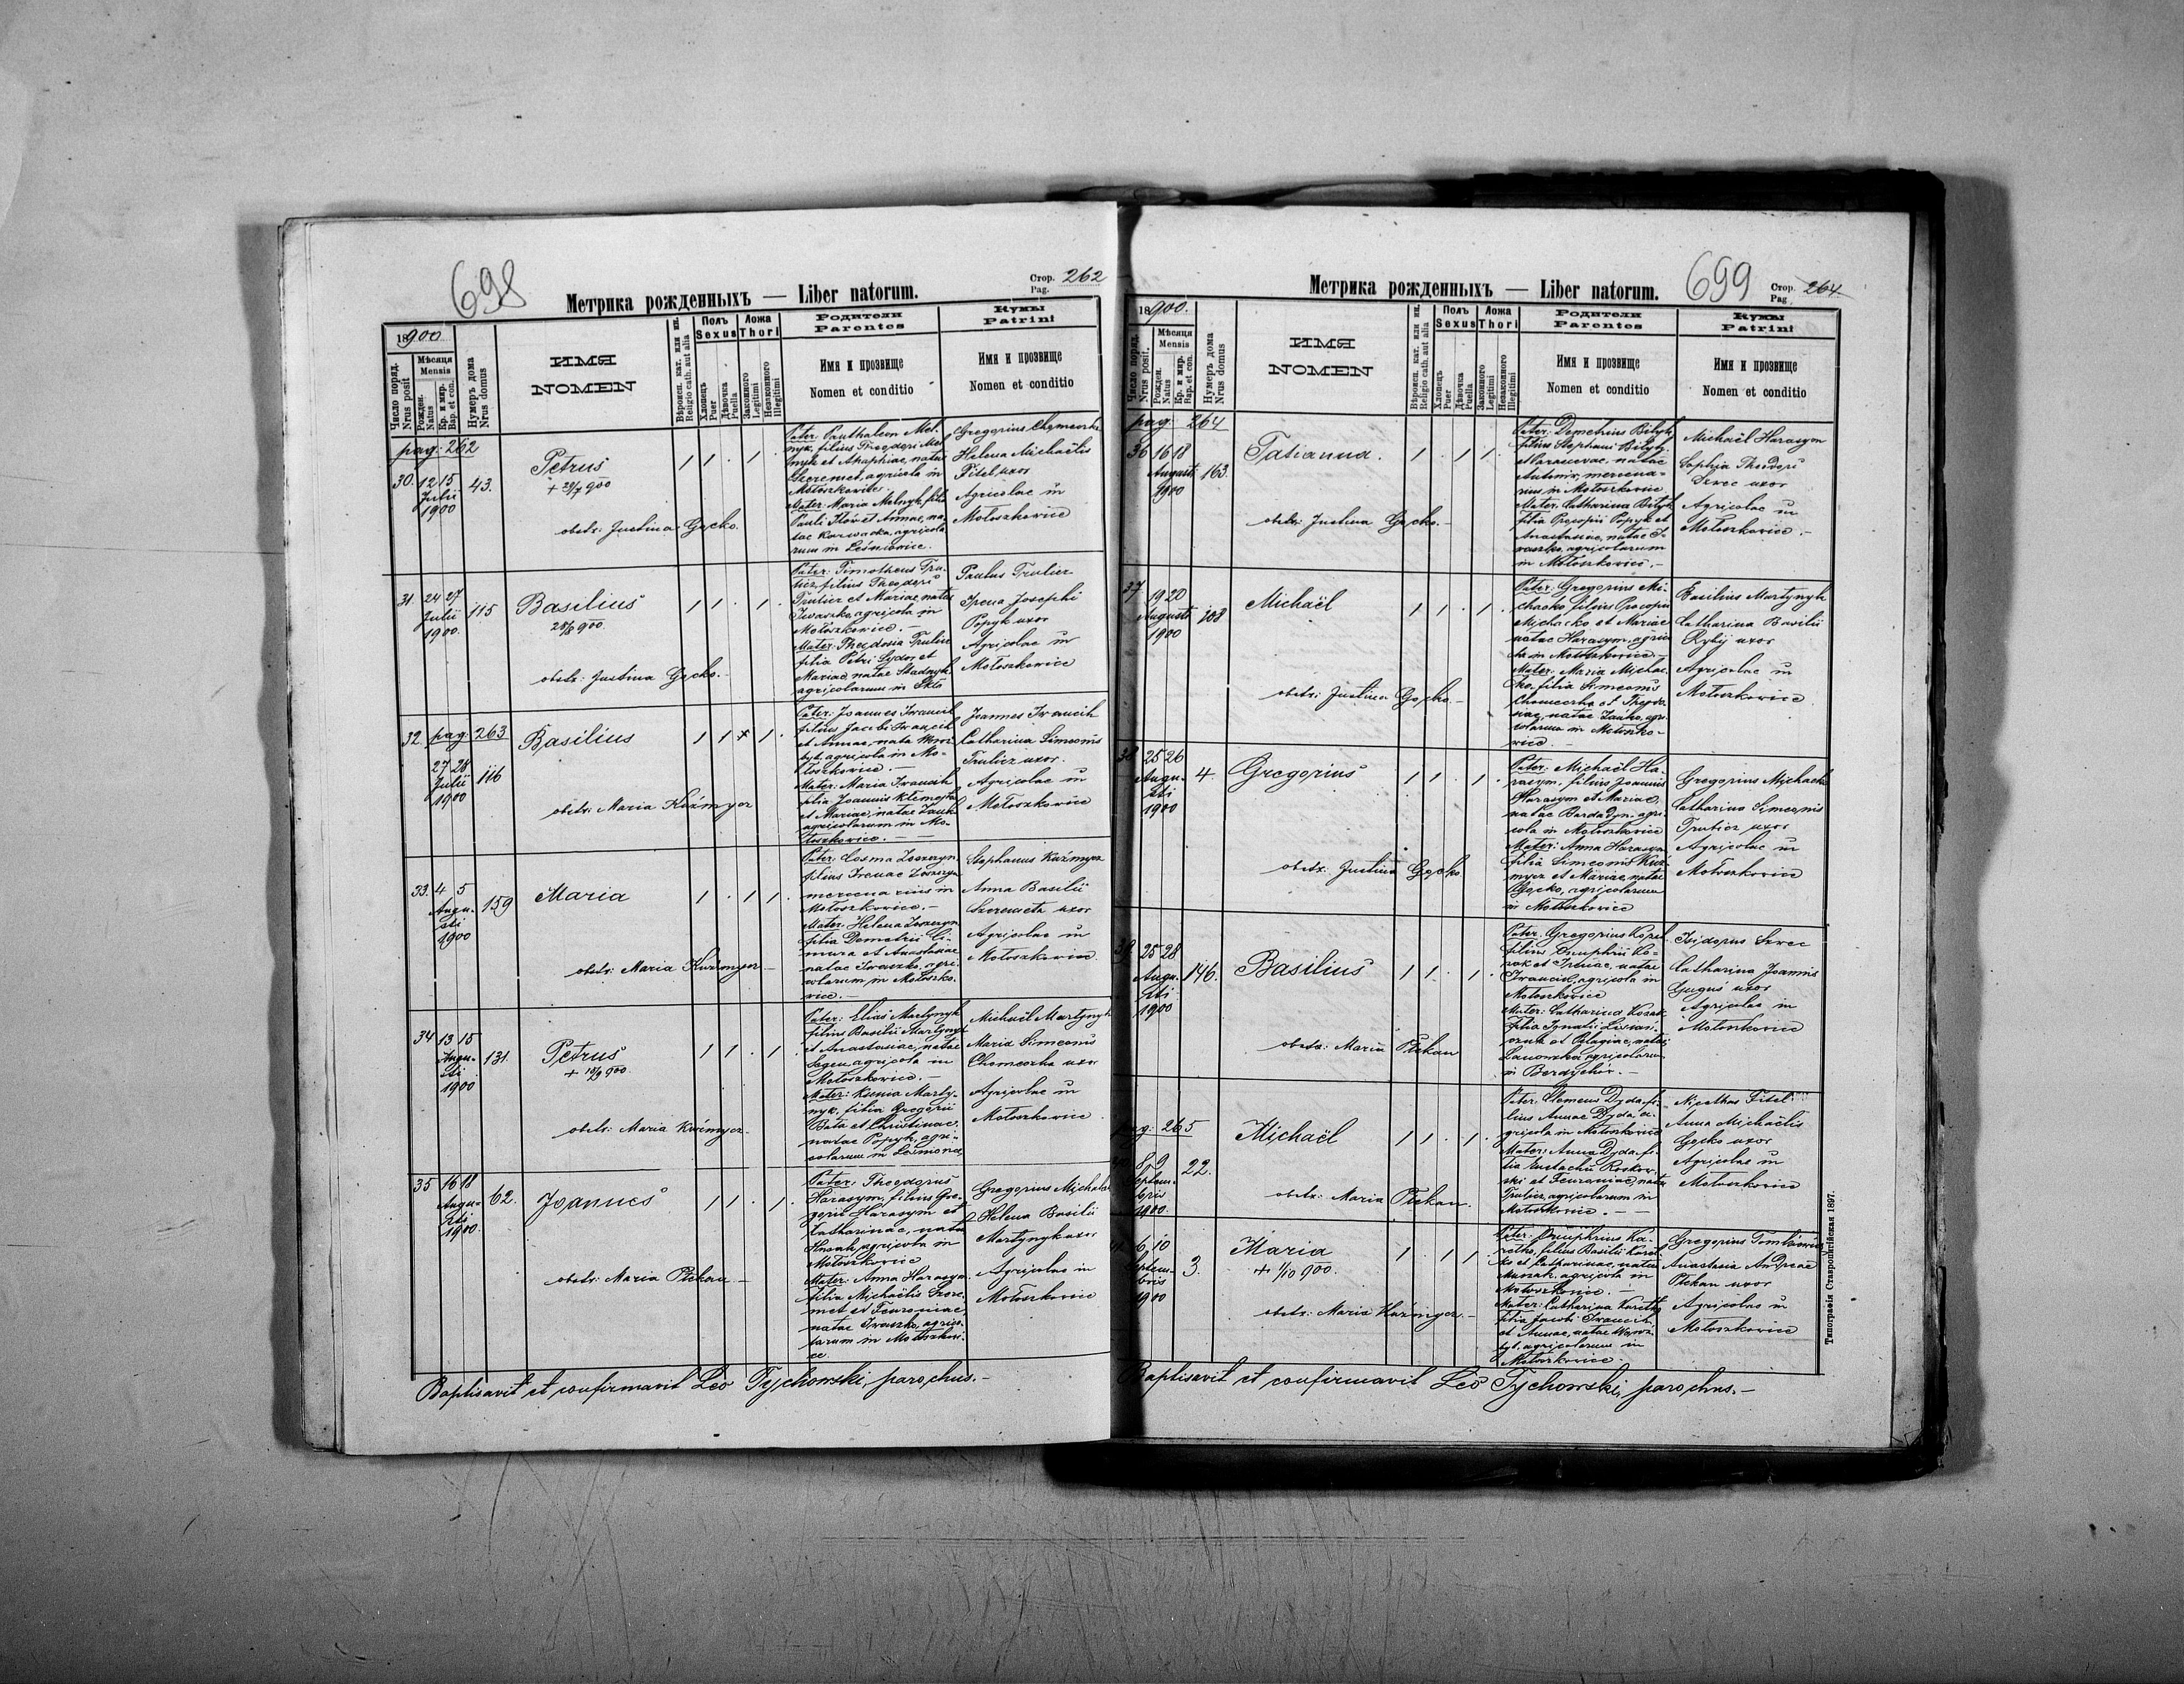 698
Метрика рожденныхъ — Liber natorum.
Стор. 262
Pag.
18900
Число поряд.
Nrus posit
Мѣсяця
Mensis
Рожден.
Natus
Кр. и мир.
Bap. et con.
Нумеръ дома
Nrus domus
ИМЯ
NOMEN
Вѣроисп. кат. или ин.
Religio cath. aut alia
Полъ
Sexus
Хлопець
Puer
Дѣвочка
Puella
Ложа
Thori
Законного
Legitimi
Незаконного
Illegitimi
Родители
Parentes
Имя и прозвище
Nomen et conditio
Кумы
Patrini
Имя и прозвище
Nomen et conditio
pag: 262
30. 12 15
Julii
1900
43.
Petrus
+ 29/7 900
obstr: Justina Gocko.
1 1 . 1 .
Pater: Panthaleon Mel-
nyk, filius Theodori Mel
nyk et Agaphiae, natae
Szeremet, agricola in
Mołoszkowice.
Mater: Maria Melnyk, filia
Pauli Iłów et Annae, na-
tae Karwacka, agricola
rum in Leśniowice.
Gregorius Chomeczko
Helena Michaëlis
Fitel uxor
Agricolae in
Mołoszkowice
31. 24 27
Julii
1900.
115
Basilius
28/8 900.
obstr: Justina Gocko.
1 1 . 1 .
Pater: Timotheus Tru-
ticz, filius Theodori
Truticz et Mariae, natae
Iwaszko, agricola in
Mołoszkowice.
Mater: Theodosia Truticz
filia Petri Sydor et
Mariae, natae Stadnyk
agricolarum in Skło
Paulus Truticz
Irena Josephi
Popyk uxor
Agricolae in
Mołoszkowice
32. pag: 263
27 28
Julii
1900
116
Basilius
obstr: Maria Kuźmycz
1 1 x 1 .
Pater: Joannes Iwancik
filius Jacobi Iwancik
et Annae, nata Woro-
byt, agricola in Mo-
łoszkowice.
Mater: Maria Iwancik
filia Joannis Kłemejko
et Mariae, natae Zank
agricolarum in Mo-
łoszkowice.
Joannes Iwancik
Catharina Simeonis
Truticz uxor.
Agricolae in
Mołoszkowice
33. 4 5
Augu-
sti
1900
159
Maria
obstr: Maria Kuźmycz
1 . 1 1 .
Pater: Cosma
filius Irenae
mercenarius in
Mołoszkowice.
Mater: Helena
filia Demetrii Ci-
mura et Anastasiae
natae Iwaszko, agri-
colarum in Mołoszko-
wice.
Stephanus Kuźmycz
Anna Basilii
Szeremeta uxor
Agricolae in
Mołoszkowice
34 13 15
Augu-
sti
1900
131.
Petrus
+ 18/9 900.
obstr: Maria Kuźmycz
1 1 . 1 .
Pater: Elias Martynyk
filius Basilii Martynyk
et Anastasiae, natae
Segen, agricola in
Mołoszkowice.
Mater: Ksenia Marty-
nyk, filia Gregorii
Bata et Christinae,
natae Popyk, agri-
colarum in
Michaël Martynyk
Maria Simeonis
Chomeczko uxor
Agricolae in
Mołoszkowice
35 16 18
Augu-
sti
1900.
62.
Joannes
obstr: Maria Ptekan
1 1 . 1 .
Pater: Theodorus
Harasym, filius Gre-
gorii Harasym et
Catharinae, natae
Husak, agricola in
Mołoszkowice
Mater: Anna Harasym
filia Michaëlis Szere-
met et Fenroniae
natae Iwaszko, agrico-
larum in Mołoszkowi-
ce.
Gregorius Michacko
Helena Basilii
Martynyk uxor
Agricolae in
Mołoszkowice
Baptisavit et confirmavit Leo Tychowski, parochus.
Метрика рожденныхъ — Liber natorum.
699
Стор. 264.
Pag.
18900.
Число поряд.
Nrus posit.
Мѣсяця
Mensis
Рожден.
Natus
Кр. и мир.
Bap. et con.
Нумеръ дома
Nrus domus
ИМЯ
NOMEN
Вѣроисп. кат. или ин.
Religio cath. aut alia
Полъ
Sexus
Хлопець
Puer
Дѣвочка
Puella
Ложа
Thori
Законного
Legitimi
Незаконного
Illegitimi
Родители
Parentes
Имя и прозвище
Nomen et conditio
Кумы
Patrini
Имя и прозвище
Nomen et conditio
pag: 264
36 16 18
Augusti
1900
163.
Tatianna.
obstr: Justina Gocko.
1 . 1 1 .
Pater: Demetrius Bityk
filius Stephani Bityk
et Parascevae, natae
mercena-
rius in Mołoszkowice
Mater: Catharina Bityk
filia Procopii Popyk et
Anastasiae, natae I-
waszko, agricolarum
in Mołoszkowice.
Michaël Harasym
Sophia Theodori
Szwec uxor
Agricolae in
Mołoszkowice.
37 19 20
Augusti
1900
108
Michaël
obstr: Justina Gocko.
1 1 . 1 .
Pater: Gregorius Mi-
chacko filius Procopii
Michacko et Mariae
natae Harasym, agrico
la in Mołoszkowice.
Mater: Maria Micha-
cko, filia Simeonis
Chomeczko et Theodo
siae, natae Zanko, agri-
colarum in Mołoszko-
wice.
Basilius Martynyk
Catharina Basilii
Rybij uxor
Agricolae in
Mołoszkowice
38 25 26
Augu-
sti
1900
4.
Gregorius
obstr: Justina Gocko
1 1 . 1 .
Pater: Michaël Ha-
rasym, filius Joannis
Harasym et Mariae,
natae Bardadyn, agri-
cola in Mołoszkowice
Mater: Anna Harasym
filia Simeonis Kuź-
mycz et Mariae, natae
Gocko, agricolarum
in Mołoszkowice
Gregorius Michacko
Catharina Simeonis
Truticz uxor
Agricolae in
Mołoszkowice
39. 25 28
Augu-
sti
1900
146.
Basilius
obstr: Maria Ptekan
1 1 . 1 .
Pater: Gregorius
filius Onuphrii Ko-
zak et Irenae, natae
Iwancik, agricola in
Mołoszkowice
Mater: Catharina Kozak
filia Ignatii
et Pelagiae, natae
agricolarum
in Berdychów.
Isidorus Szwec
Catharina Joannis
Guguś uxor
Agricolae in
Mołoszkowice
pag: 265
40 8 9
Septem-
bris
1900.
22.
Michaël
obstr: Maria Ptekan.
1 1 . 1 .
Pater: Clemens Dyda, fi-
lius Annae Dyda a-
gricola in Mołoszkowice
Mater: Anna Dyda, fi-
lia Eustachii Roskow-
ski et Fenroniae, nata
Truticz, agricolarum in
Mołoszkowice.
Nicethas Fitel
Anna Michaëlis
Gocko uxor
Agricolae in
Mołoszkowice
41 6 10
Septem-
bris
1900
3.
Maria
+ 1/10 900.
obstr: Maria Kuźmycz.
1 . 1 1
Pater: Onuphrius Ka-
retko, filius Basilii Karet-
ko et Catharinae, natae
Husak, agricola in
Mołoszkowice.
Mater: Catharina Karetko
filia Jacobi Iwancik
et Annae, natae Woro-
byt, agricolarum in
Mołoszkowice.
Gregorius
Anastasia Andreae
Ptekan uxor
Agricolae in
Mołoszkowice
Baptisavit et confirmavit Leo Tychowski, parochus.
Типографія Ставропигійская 1897.